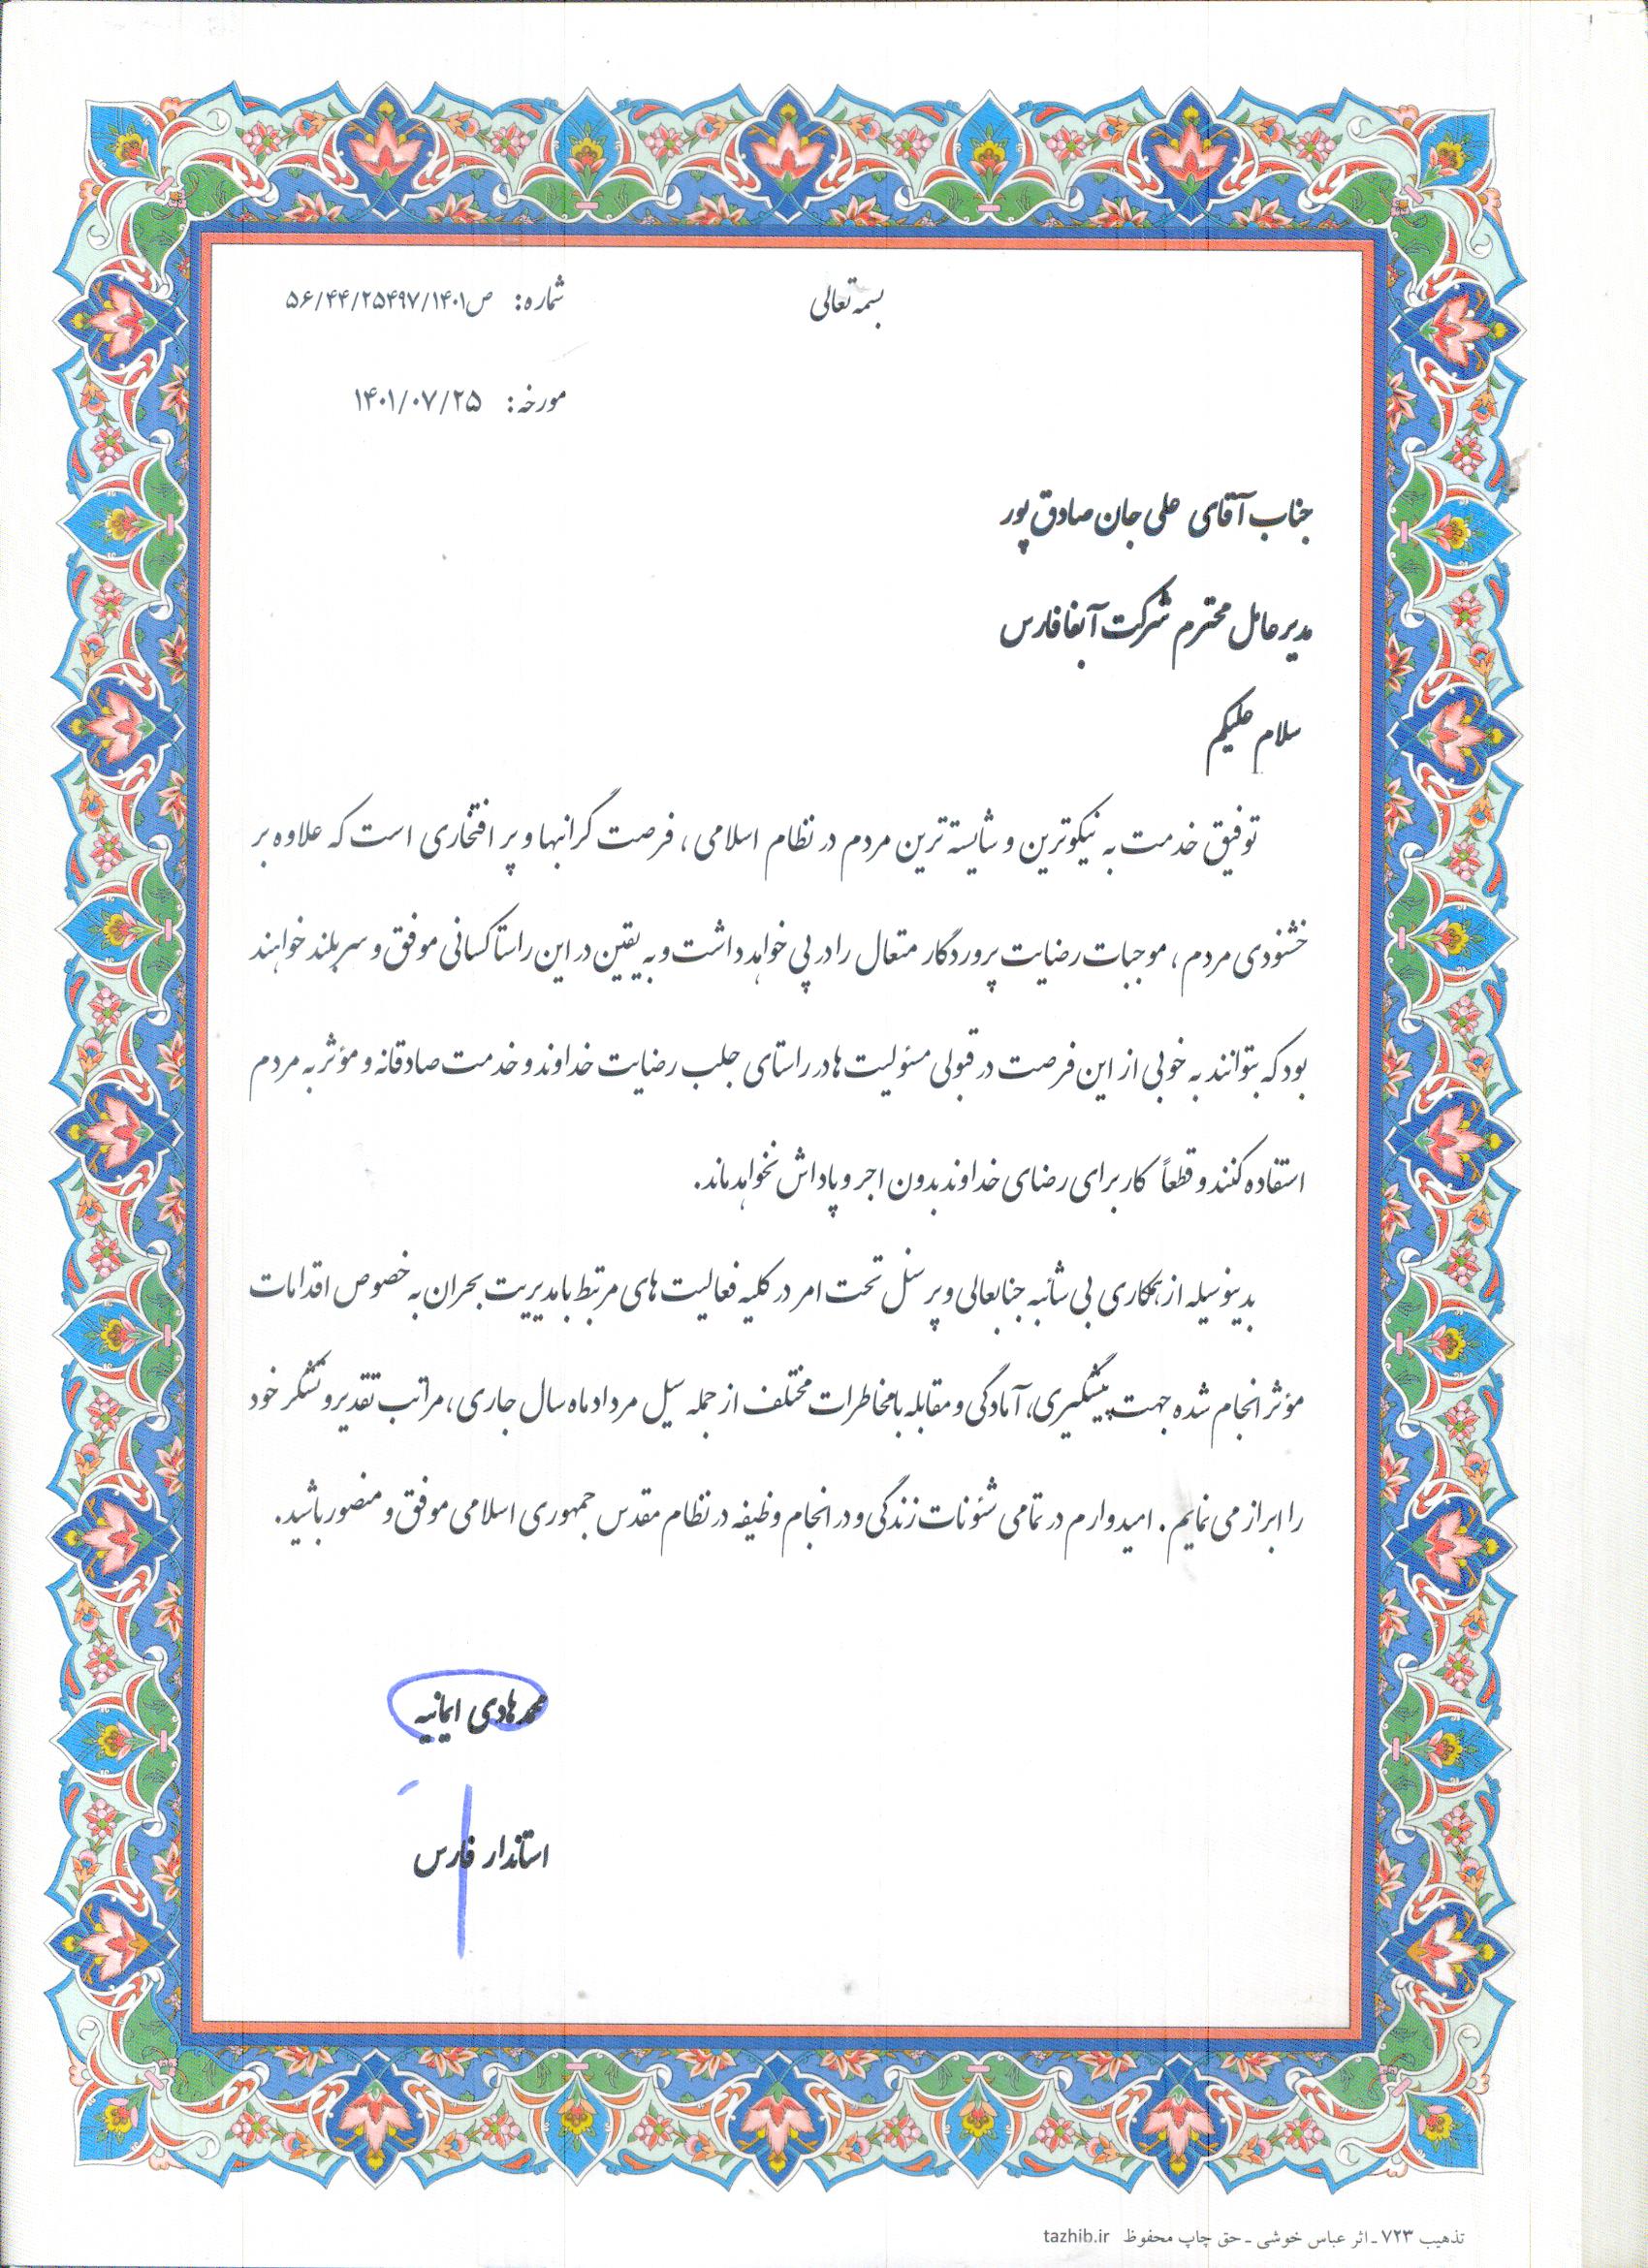 بسمه تعالی
شماره: ص۵۶/۴۴/۲۵۴۹۷/۱۴۰۱
مورخه: ۱۴۰۱/۰۷/۲۵
جناب آقای علی جان صادق پور
مدیرعامل محترم شرکت آبفا فارس
سلام علیکم
توفیق خدمت به نیکوترین و شایسته ترین مردم در نظام اسلامی، فرصت گرانبها و پر افتخاری است که علاوه بر
خشنودی مردم، موجبات رضایت پروردگار متعال را در پی خواهد داشت و به یقین در این راستا کسانی موفق و سربلند خواهند
بود که بتوانند به خوبی از این فرصت در قبولی مسئولیت ها در راستای جلب رضایت خداوند و خدمت صادقانه و مؤثر به مردم
استفاده کنند و قطعاً کار برای رضای خداوند بدون اجر و پاداش نخواهد ماند.
بدینوسیله از همکاری بی شائبه جنابعالی و پرسنل تحت امر در کلیه فعالیت های مرتبط با مدیریت بحران به خصوص اقدامات
مؤثر انجام شده جهت پیشگیری، آمادگی و مقابله با مخاطرات مختلف از جمله سیل مرداد ماه سال جاری، مراتب تقدیر و تشکر خود
را ابراز می نمایم. امیدوارم در تمامی شئونات زندگی و در انجام وظیفه در نظام مقدس جمهوری اسلامی موفق و منصور باشید.
محمد هادی ایمانیه
استاندار فارس
تذهیب ۷۲۳ ـ اثر عباس خوشی ـ حق چاپ محفوظ tazhib.ir